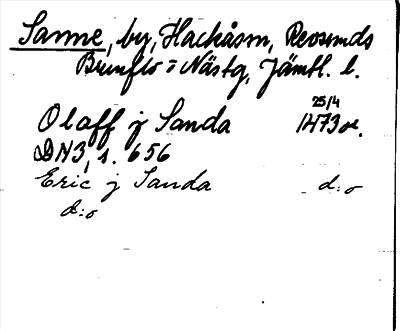 Sanne, by, Hackåsm, Revsunds
Brunflo = Nästg, Jämtl. l.
25/4
Olaff j Sanda 1473 or.
DN3, s. 656
Eric j Sanda d:o
d:o